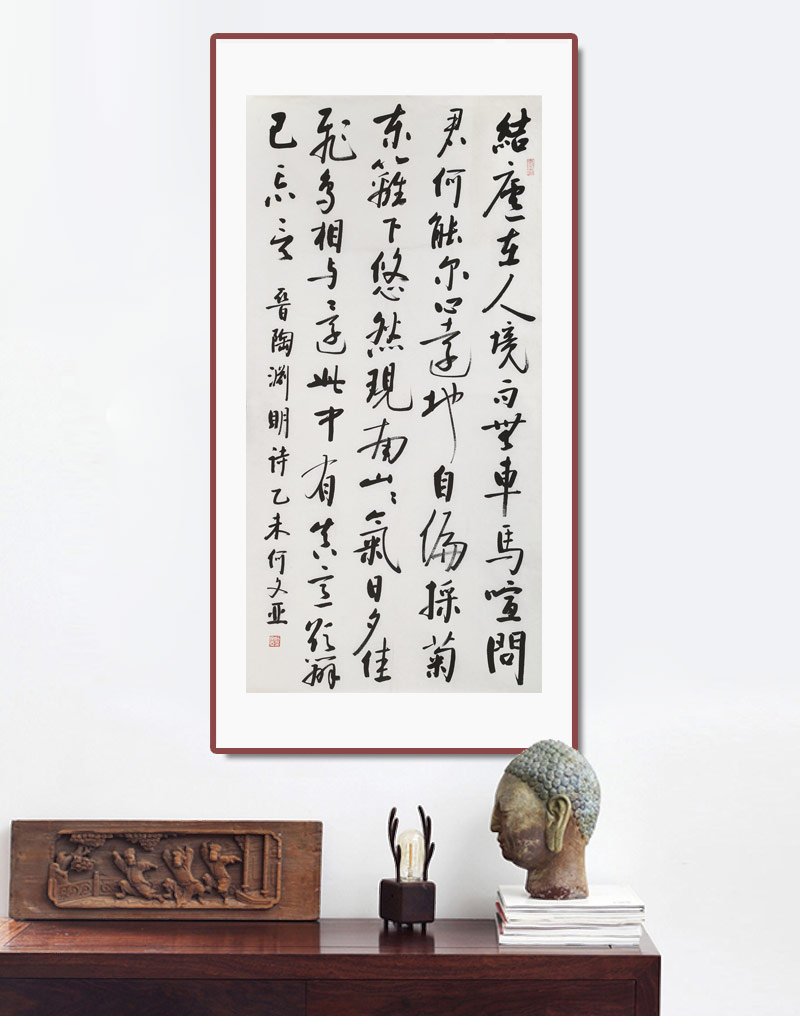 結廬在人境而無車馬喧問
君何能尔心遠地自偏採菊
東籬下悠然現南山〻氣日夕佳
飛鳥相与還此中有真意欲辯
已忘言 晋陶渊明诗乙未何文亚